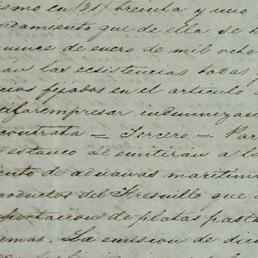 como en 31 treinta y uno
camiento que de ella se h
nunce de enero de mil ocho
an las existencias todas
cios fijados en el articulo
tifa empresar indemnizan
contrata = Tercero = Par
estanco se emitirán a la
ento de aduanas maritim
productos del Fresnillo que
portacion de platas pasta
emas. La emision de dic